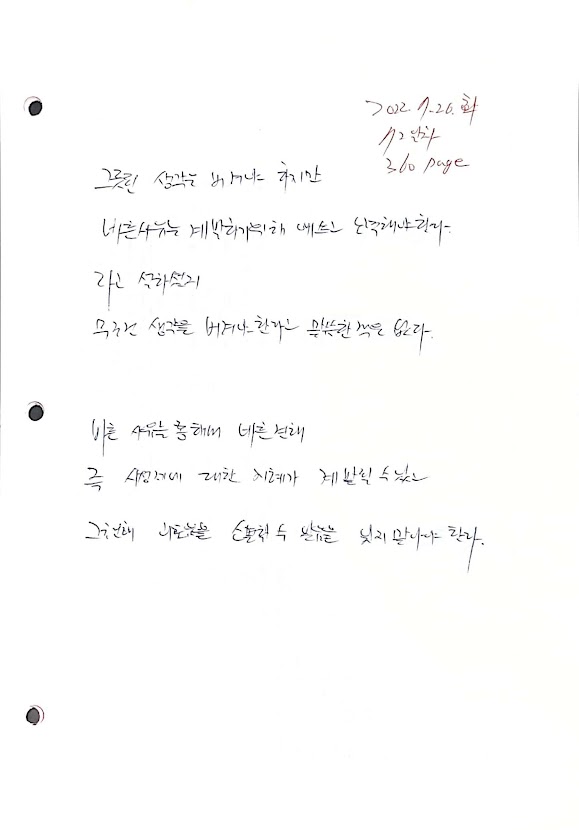 2022. 7. 26. 화
72일차
360 page
그릇된 생각은 버려야 하지만
바른사유는 계발하기위해 애쓰고 노력해야한다.
라고 설하셨지
무조건 생각을 버려야한다고 말씀한적은 없다.
바른 사유를 통해서 바른견해
즉 사성제에 대한 지혜가 계발될 수 있고
그럴때 괴로움을 소멸할 수 있음을 잊지 말아야 한다.